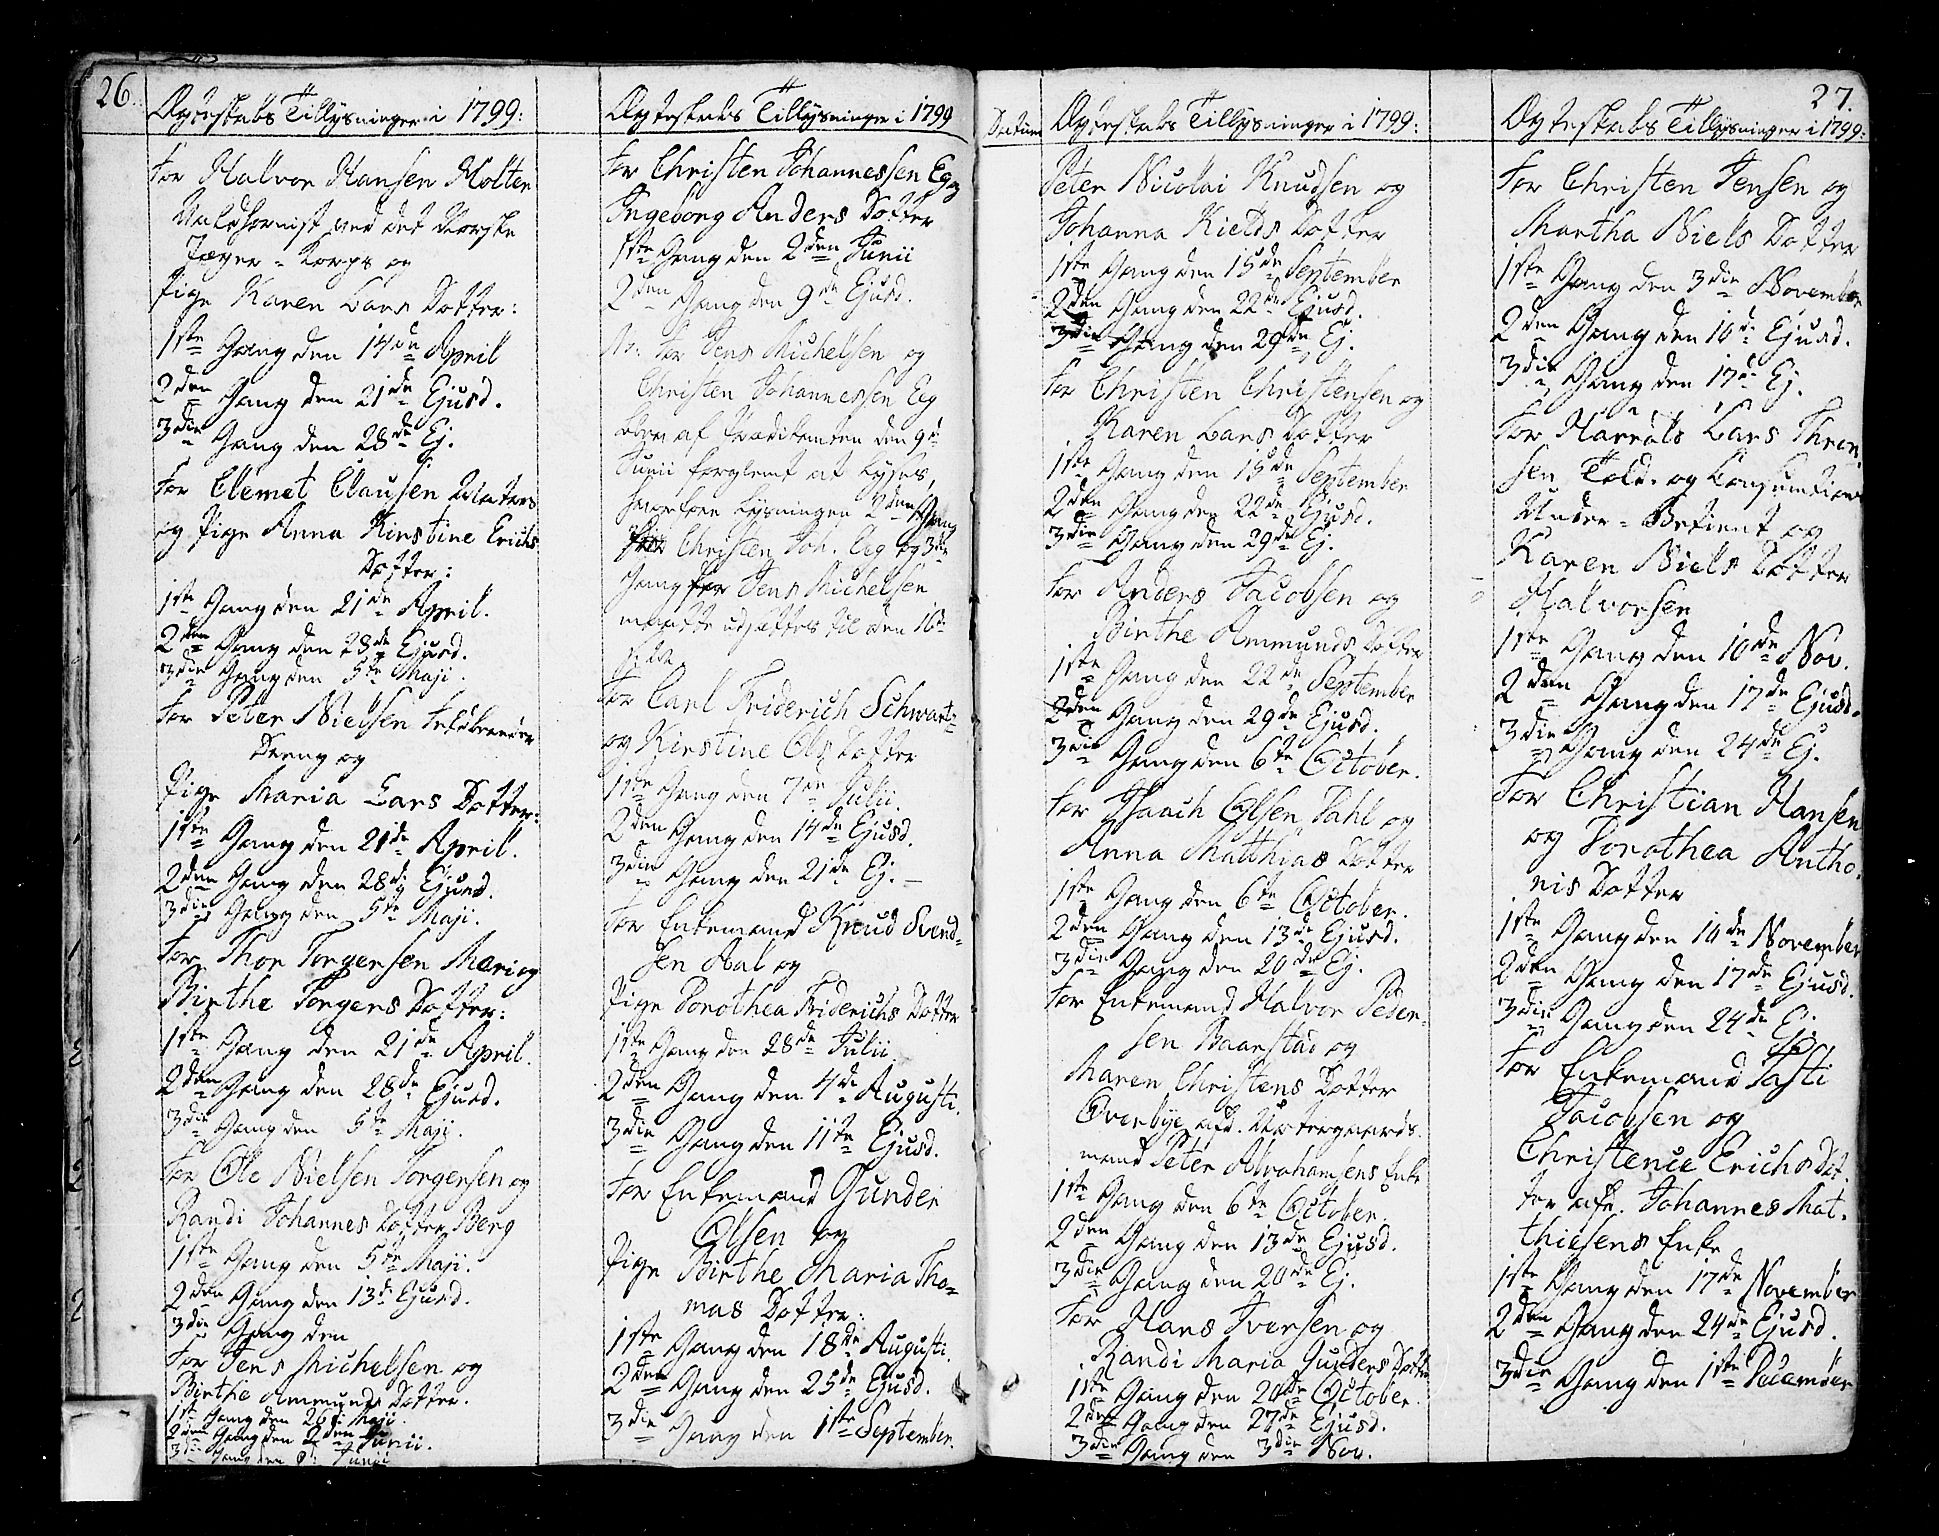 26.
Ægteskabs Tillysninger i 1799:
For Halvor Hansen Molter
Valdhornist ved det Norske
Jæger-Korps og
Pige Karen Lars Dotter:
1ste Gang den 14de April
2den Gang den 21de Ejusd.
3die Gang den 28de Ej.
For Clemet Clausen
og Pige Anna Kirstine Erichs
Dotter:
1ste Gang den 21de April.
2den Gang den 28de Ejusd.
3die Gang den 5te Maji.
For Peter Nielsen
Dreng og
Pige Maria Lars Dotter:
1ste Gang den 21de April.
2den Gang den 28de Ejusd.
3die Gang den 5te Maji.
For Thor Torgersen Meri og
Birthe Torgers Dotter:
1ste Gang den 21de April.
2den Gang den 28de Ejusd.
3die Gang den 5te Maji.
For Ole Nielsen Torgersen og
Randi Johannes Dotter Berg
1ste Gang den 5te Maji.
2den Gang den 13de Ejusd.
3die Gang den
For Jens Michelsen og
Birthe Ammunds Dotter.
1ste Gang den 26de Maji.
2den Gang den 2den Junii.
3die Gang den 9de Junii
Ægteskabs Tillysninger i 1799
For Christen Johannessen Eeg og
Ingeborg Anders Dotter
1ste Gang den 2den Junii
2den Gang den 9de Ejusd.
No: For Jens Michelsen og
Christen Johannessen Eeg
blev af Præditanten den 9de
Junii forglemt at lyses,
hvorfore Lysningen 2den Gang
for Christen Joh. Eeg og 3die
Gang for Jens Michelsen
maatte udsættes til den 16de
For Carl Friderich Schwartz
og Kirstine Ols Dotter
1ste Gang den 7de Julii.
2den Gang den 14de Ejusd.
3die Gang den 21de Ej. —
For Enkemand Knud Svend-
sen Aal og
Pige Dorothea Friderichs Dotter
1ste Gang den 28de Julii.
2den Gang den 4de Augusti.
3die Gang den 11te Ejusd.
For Enkemand Gunder
Olsen og
Pige Birthe Maria Tho-
mas Dotter:
1ste Gang den 18de Augusti.
2den Gang den 25de Ejusd.
3die Gang den 1ste September.
Datum
Ægteskabs Tillysninger i 1799:
Peter Nicolai Knudsen og
Johanna Kields Dotter
1ste Gang den 15de September
2den Gang den 22de Ejusd.
3die Gang den 29de Ej.
For Christen Christensen og
Karen Lars Dotter
1ste Gang den 15de September
2den Gang den 22de Ejusd.
3die Gang den 29de Ej.
For Anders Jacobsen og
Birthe Ammunds Dotter
1ste Gang den 22de September
2den Gang den 29de Ejusd.
3die Gang den 6te October.
For Isaach Olsen Dahl og
Anna Matthias Dotter
1ste Gang den 6te October.
2den Gang den 13de Ejusd.
3die Gang den 20de Ej.
For Enkemand Halvor Peder-
sen Baarstad og
Maren Christens Dotter
Overbye afd.
mand Peter Abrahamsens Enke
1ste Gang den 6te October.
2den Gang den 13de Ejusd.
3die Gang den 20de Ej.
For Hans Iversen og
Randi Maria Gunders Dotter
1ste Gang den 20de October.
2den Gang den 27de Ejusd.
3die Gang den 3die Nov.
27.
Ægteskabs Tillysninger i 1799:
For Christen Jensen og
Martha Niels Dotter
1ste Gang den 3die November
2den Gang den 10de Ejusd.
3die Gang den 17de Ej.
For Lars Thron-
sen Told- og Consumtions
Under-Betient og
Karen Niels Dotter
Halvorsen
1ste Gang den 10de Nov.
2den Gang den 17de Ejusd.
3die Gang den 24de Ej.
For Christian Hansen
og Dorothea Antho-
nis Dotter
1ste Gang den 10de November
2den Gang den 17de Ejusd.
3die Gang den 24de Ej.
For Enkemand
Jacobsen og
Christence Erichs Dot-
ter afd. Johannes Mat-
thiesens Enke
1ste Gang den 17de November
2den Gang den 24de Ejusd.
3die Gang den 1ste December